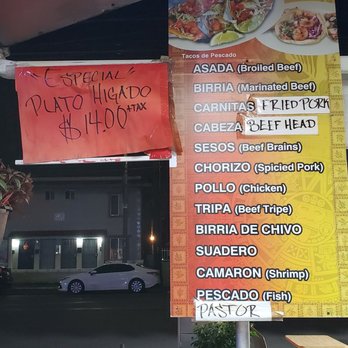 "ESPECIAL"
PLATO HIGADO
$14.00 +TAX
Tacos de Pescado
ASADA (Broiled Beef)
BIRRIA (Marinated Beef)
CARNITAS FRIED PORK
CABEZA BEEF HEAD
SESOS (Beef Brains)
CHORIZO (Spicied Pork)
POLLO (Chicken)
TRIPA (Beef Tripe)
BIRRIA DE CHIVO
SUADERO
CAMARON (Shrimp)
PESCADO (Fish)
PASTOR